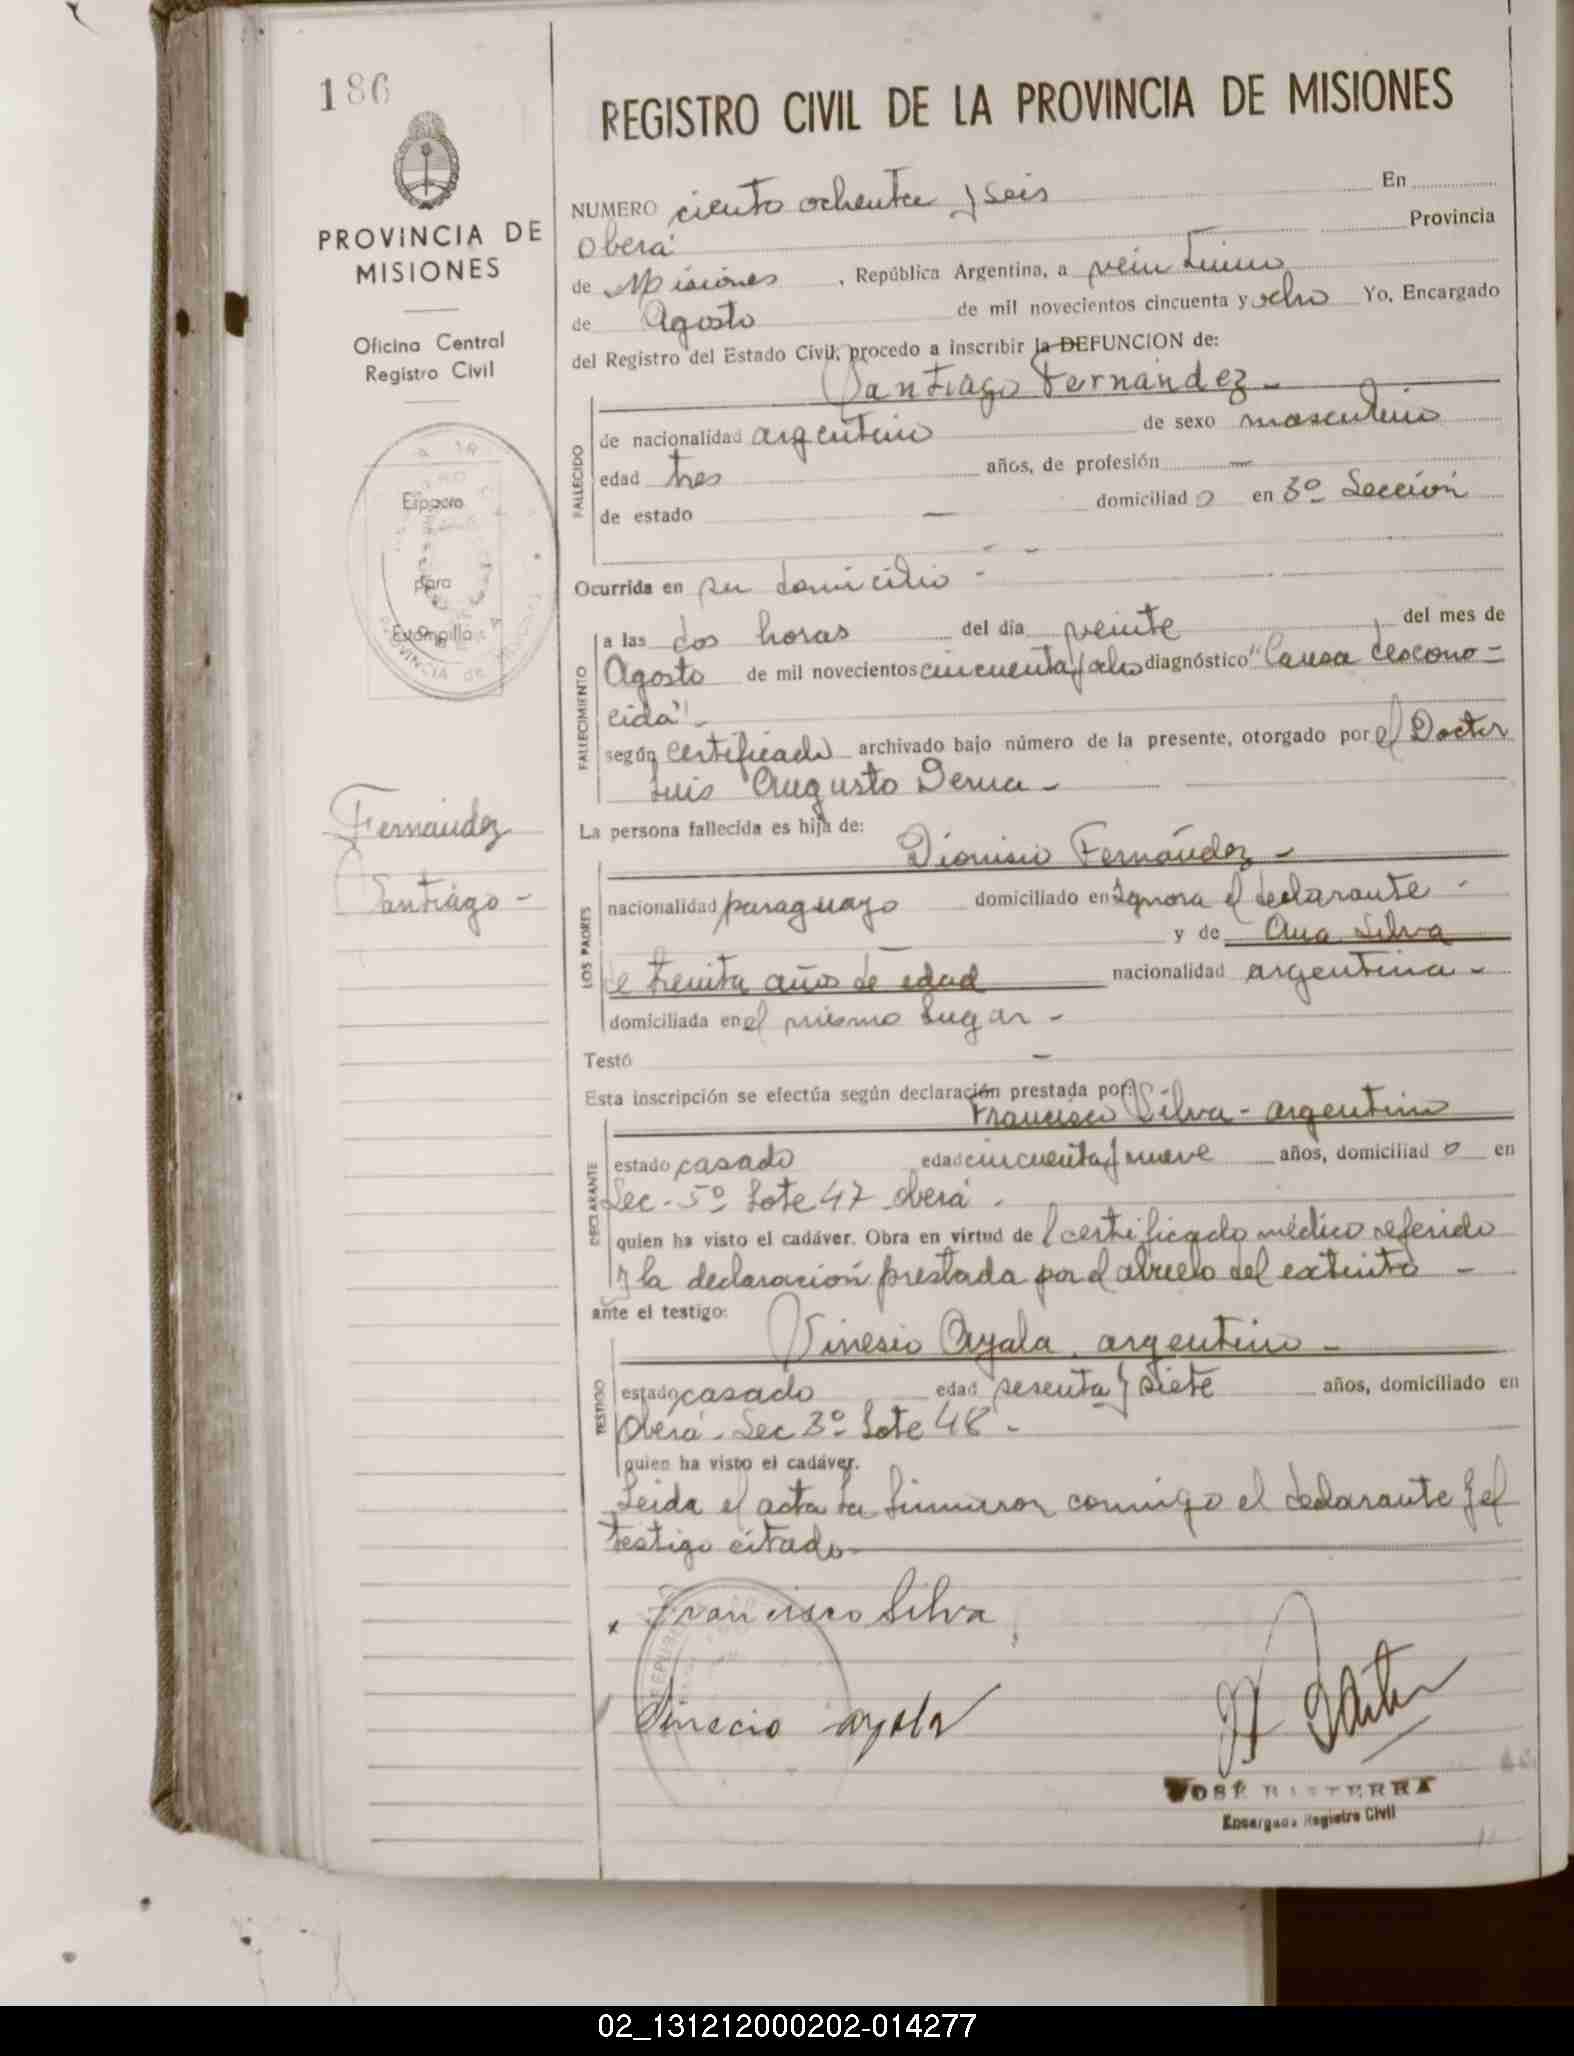 186
REGISTRO CIVIL DE LA PROVINCIA DE MISIONES
PROVINCIA DE
MISIONES
Oficina Central
Registro Civil
Espacio
para
Estampilla
PROVINCIA de
Fernández
Santiago -
NUMERO ciento ochenta y seis En
Oberá Provincia
de Misiones, República Argentina, a veintiuno
de Agosto de mil novecientos cincuenta y ocho Yo, Encargado
del Registro del Estado Civil, procedo a inscribir la DEFUNCION de:
Santiago Fernández -
FALLECIDO
de nacionalidad argentino de sexo masculino
edad tres años, de profesión —
de estado — domiciliado en 3º Sección
Ocurrida en su domicilio -
FALLECIMIENTO
a las dos horas del día veinte, del mes de
Agosto de mil novecientos cincuenta y ocho diagnóstico "Causa descono-
cida" -
según certificado archivado bajo número de la presente, otorgado por el Doctor
Luis Augusto Derna -
La persona fallecida es hija de:
Dionisio Fernández -
LOS PADRES
nacionalidad paraguayo domiciliado en Ignora el declarante -
y de Ana Silva
de treinta años de edad nacionalidad argentina -
domiciliada en el mismo lugar -
Testó —
Esta inscripción se efectúa según declaración prestada por:
Francisco Silva - argentino
DECLARANTE
estado casado edad cincuenta y nueve años, domiciliado en
Sec. 5º Lote 47 Oberá.
quien ha visto el cadáver. Obra en virtud del certificado médico referido
y la declaración prestada por el abuelo del extinto -
ante el testigo:
Sinesio Ayala, argentino -
TESTIGO
estado casado edad sesenta y siete años, domiciliado en
Oberá - Sec 3º Lote 48 -
quien ha visto el cadáver.
Leida el acta la firmaron conmigo el declarante y el
testigo citado
x Francisco Silva
Sinecio ayala
JOSÉ BISTERRA
Encargado Registro Civil
02_131212000202-014277